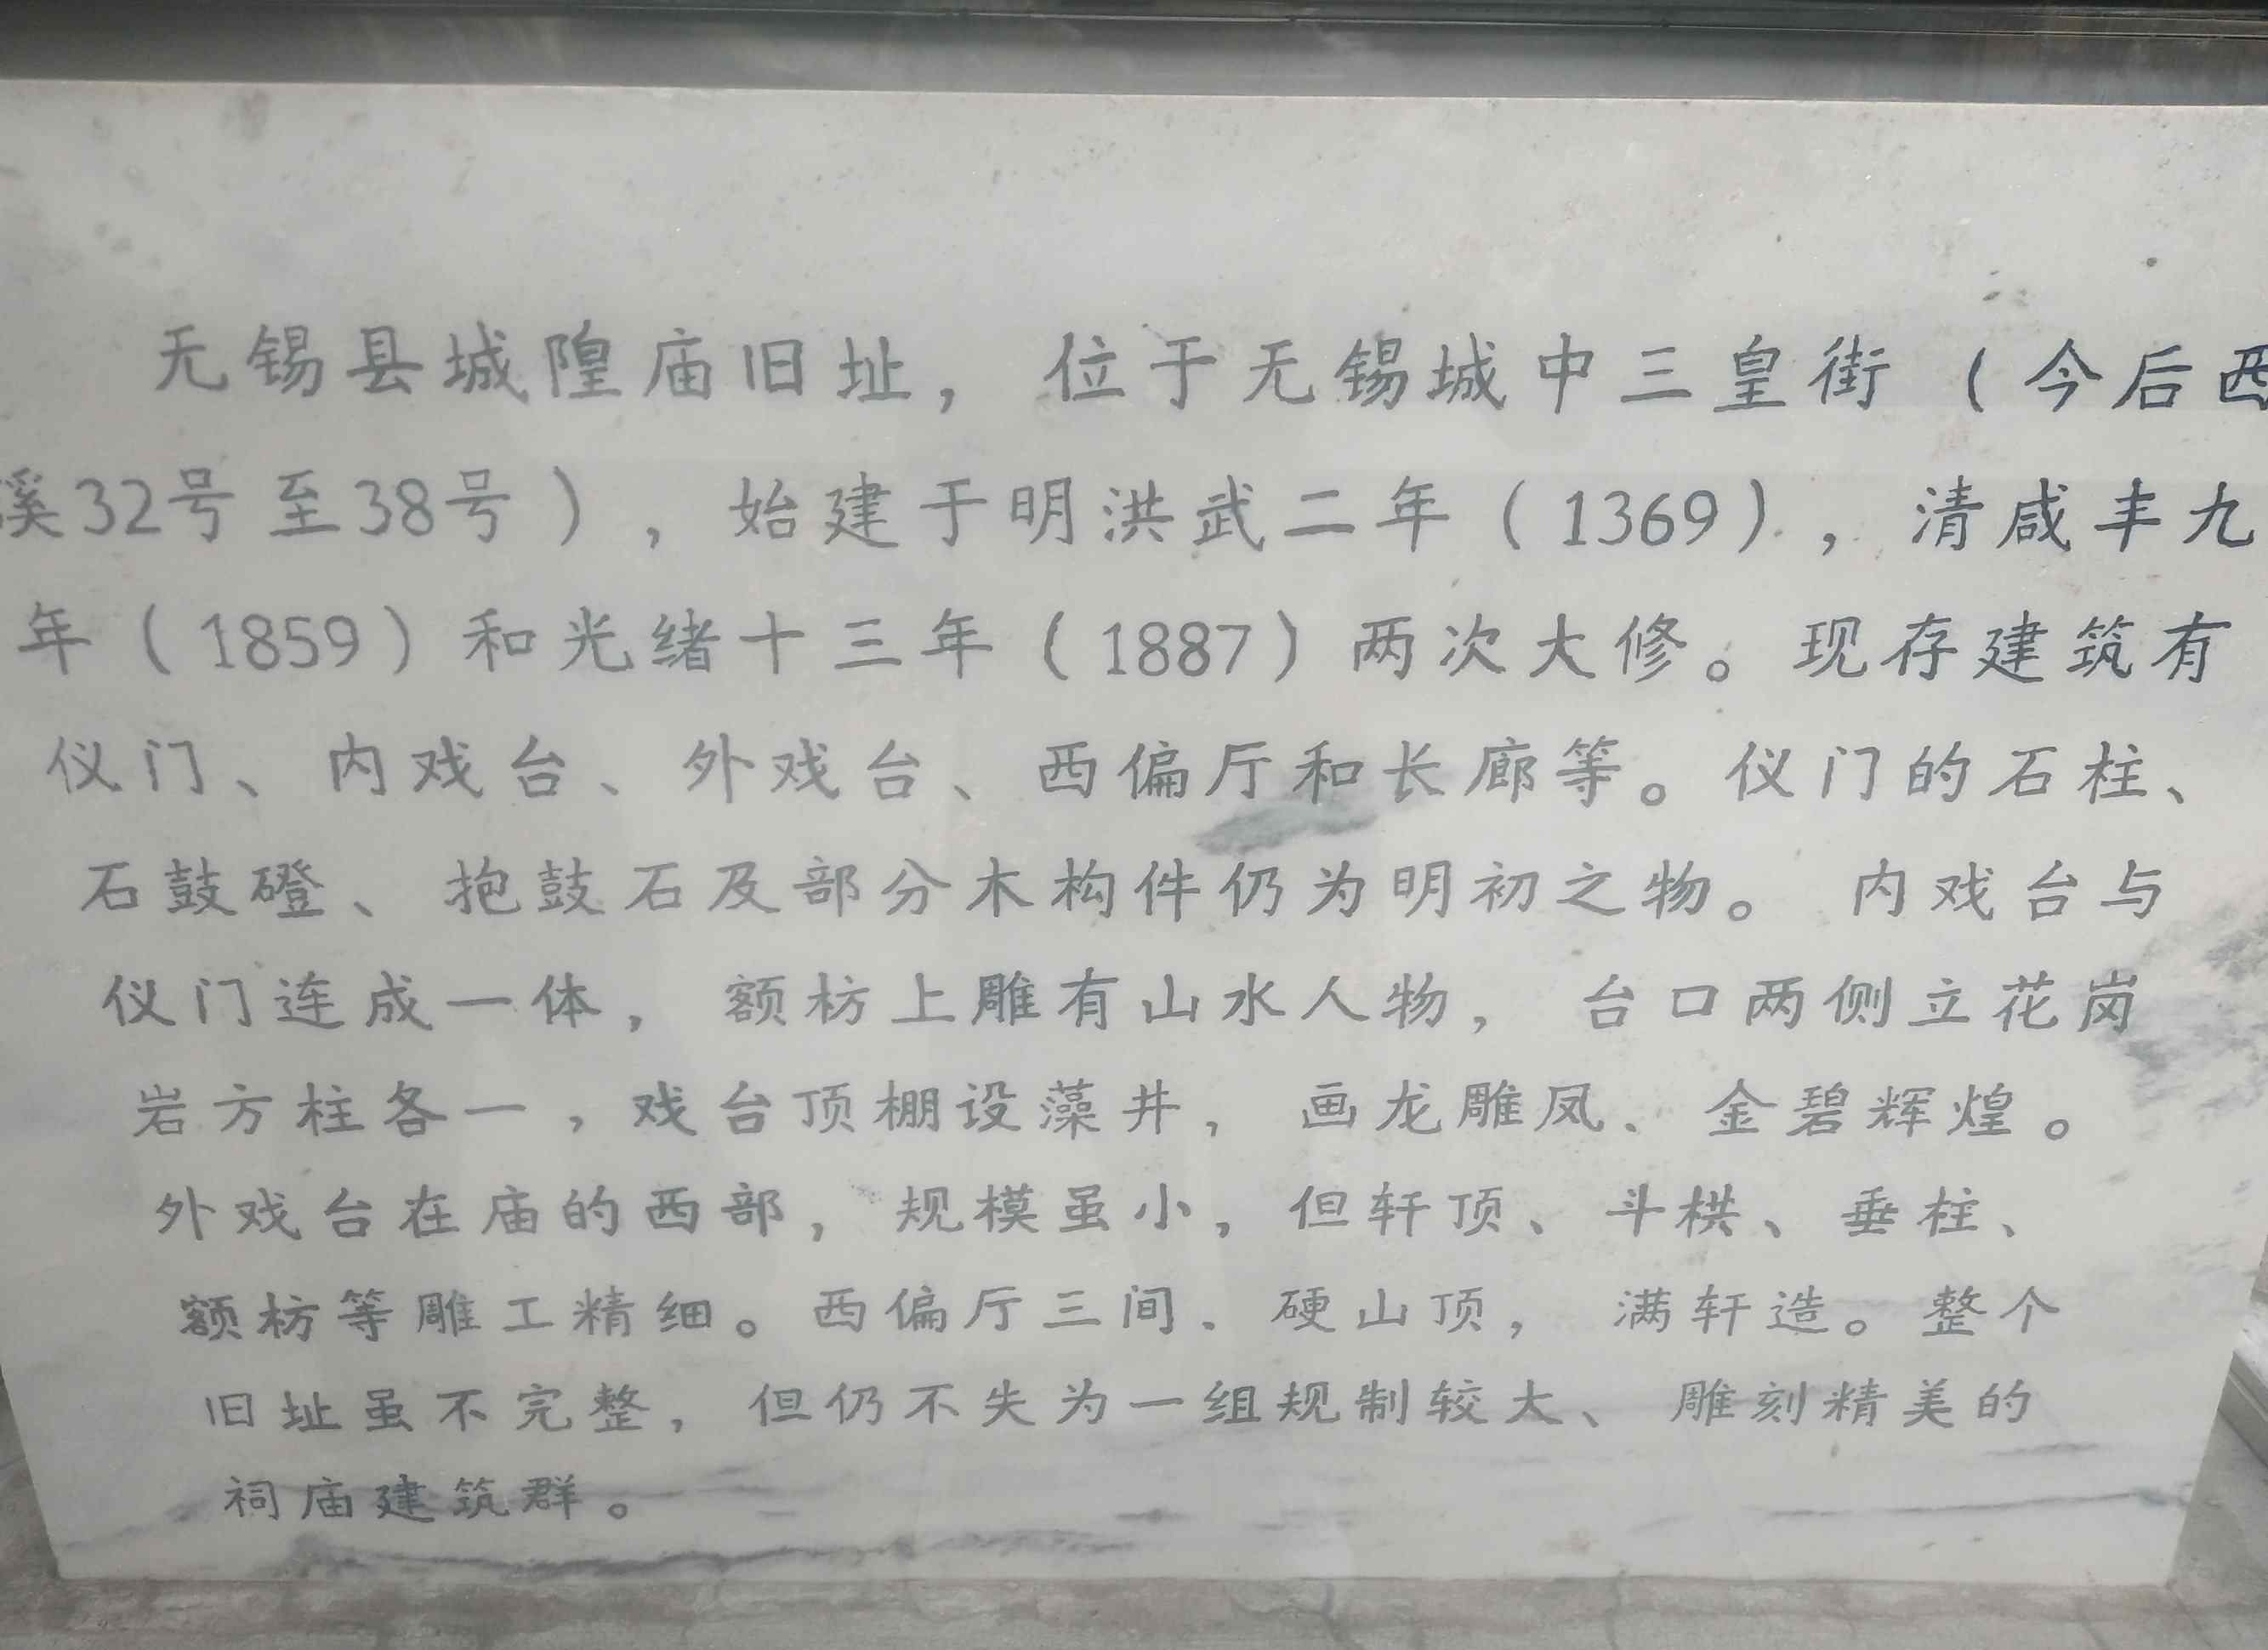 无锡县城隍庙旧址，位于无锡城中三皇街（今后西
溪32号至38号），始建于明洪武二年（1369），清咸丰九
年（1859）和光绪十三年（1887）两次大修。现存建筑有
仪门、内戏台、外戏台、西偏厅和长廊等。仪门的石柱、
石鼓磴、抱鼓石及部分木构件仍为明初之物。内戏台与
仪门连成一体，额枋上雕有山水人物，台口两侧立花岗
岩方柱各一，戏台顶棚设藻井，画龙雕凤、金碧辉煌。
外戏台在庙的西部，规模虽小，但轩顶、斗栱、垂柱、
额枋等雕工精细。西偏厅三间、硬山顶，满轩造。整个
旧址虽不完整，但仍不失为一组规制较大、雕刻精美的
祠庙建筑群。